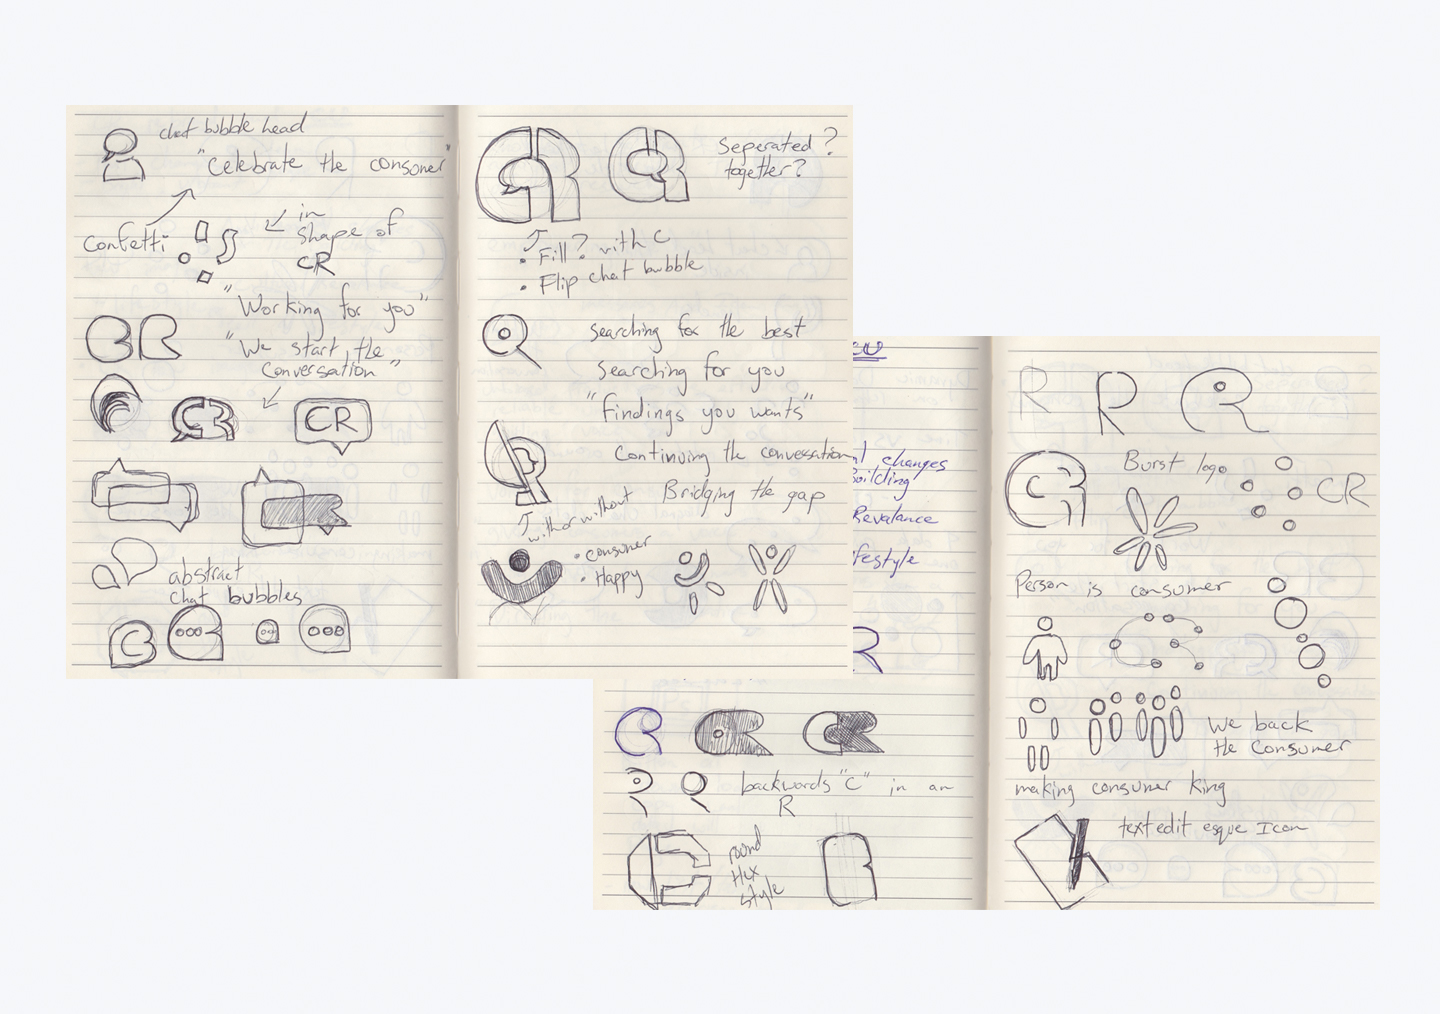 chat bubble head
"Celebrate the consoner"
Confetti
in
shape of
CR
"Working for you"
CR
"We start the
Conversation"
CR
CR
abstract
chat bubbles
C
CR
CR
Seperated?
together?
• Fill? with C
• Flip chat bubble
searching for the best
Searching for you
"findings you wants"
Continuing the conversation
Bridging the gap
with or without
• consumer
• Happy
changes
Building
Revalance
festyle
R
CR
CR
backwords "C" in an
R
round
Hex
style
R R
CR
Burst logo
CR
Person is consumer
We back
the Consumer
making consumer king
textedit esque Icon